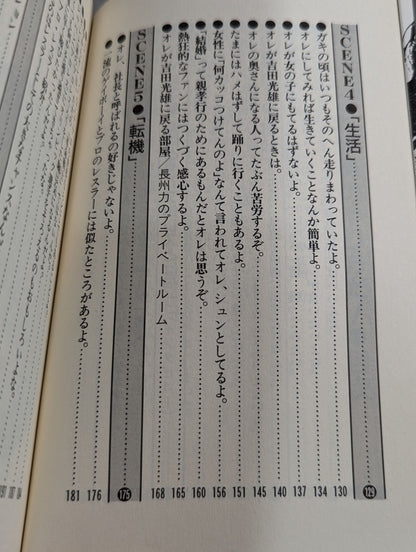 SCENE4●「生活」……129
●ガキの頃はいつもそのへん走りまわっていたよ。……130
●オレにしてみれば生きていくことなんか簡単よ。……134
●オレが女の子にもてるはずないよ。……137
●オレが吉田光雄に戻るときは。……140
●オレの奥さんになる人ってたぶん苦労するぞ。……145
●たまにはハメはずして踊りに行くこともあるよ。……151
●女性に「何カッコつけてんのよ」なんて言われてオレ、シュンとしてるよ。……156
●「結婚」って親孝行のためにあるもんだとオレは思うぞ。……160
●熱狂的なファンにはつくづく感心するよ。……165
●オレが吉田光雄に戻る部屋 長州力のプライベートルーム……168
SCENE5●「転機」……175
●オレ、社長と呼ばれるの好きじゃないよ。……176
●一流のカイボーイとプロのレスラーには似たところがあるよ。……181